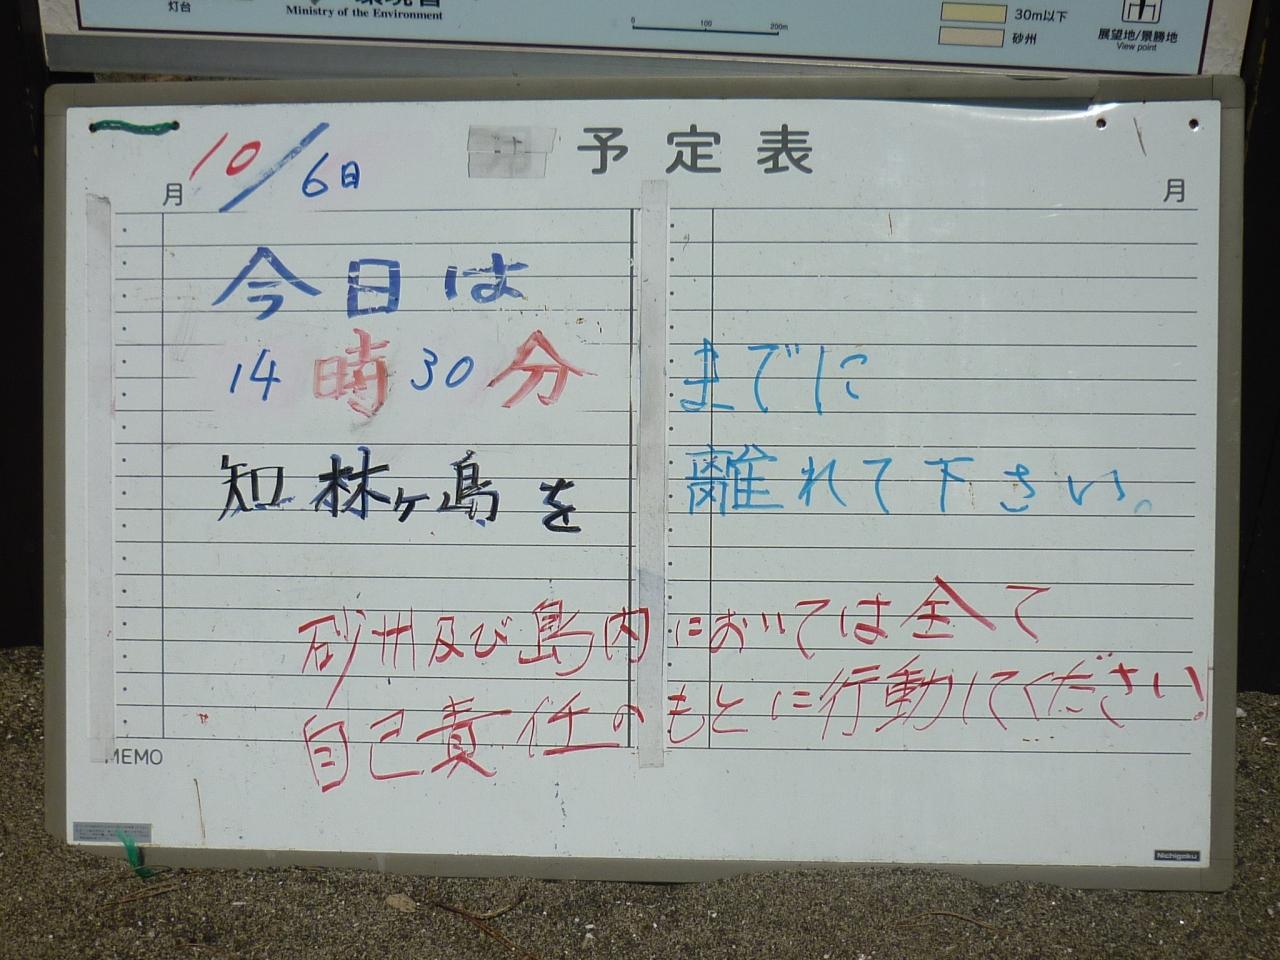 灯台
Ministry of the Environment
0 100 200m
30m以下
砂州
展望地/景勝地
View point
予定表
月 10/6日
月
今日は
14時30分までに
知林ヶ島を離れて下さい。
砂州及び島内においては全て
自己責任のもとに行動してください!
MEMO
Nichigaku